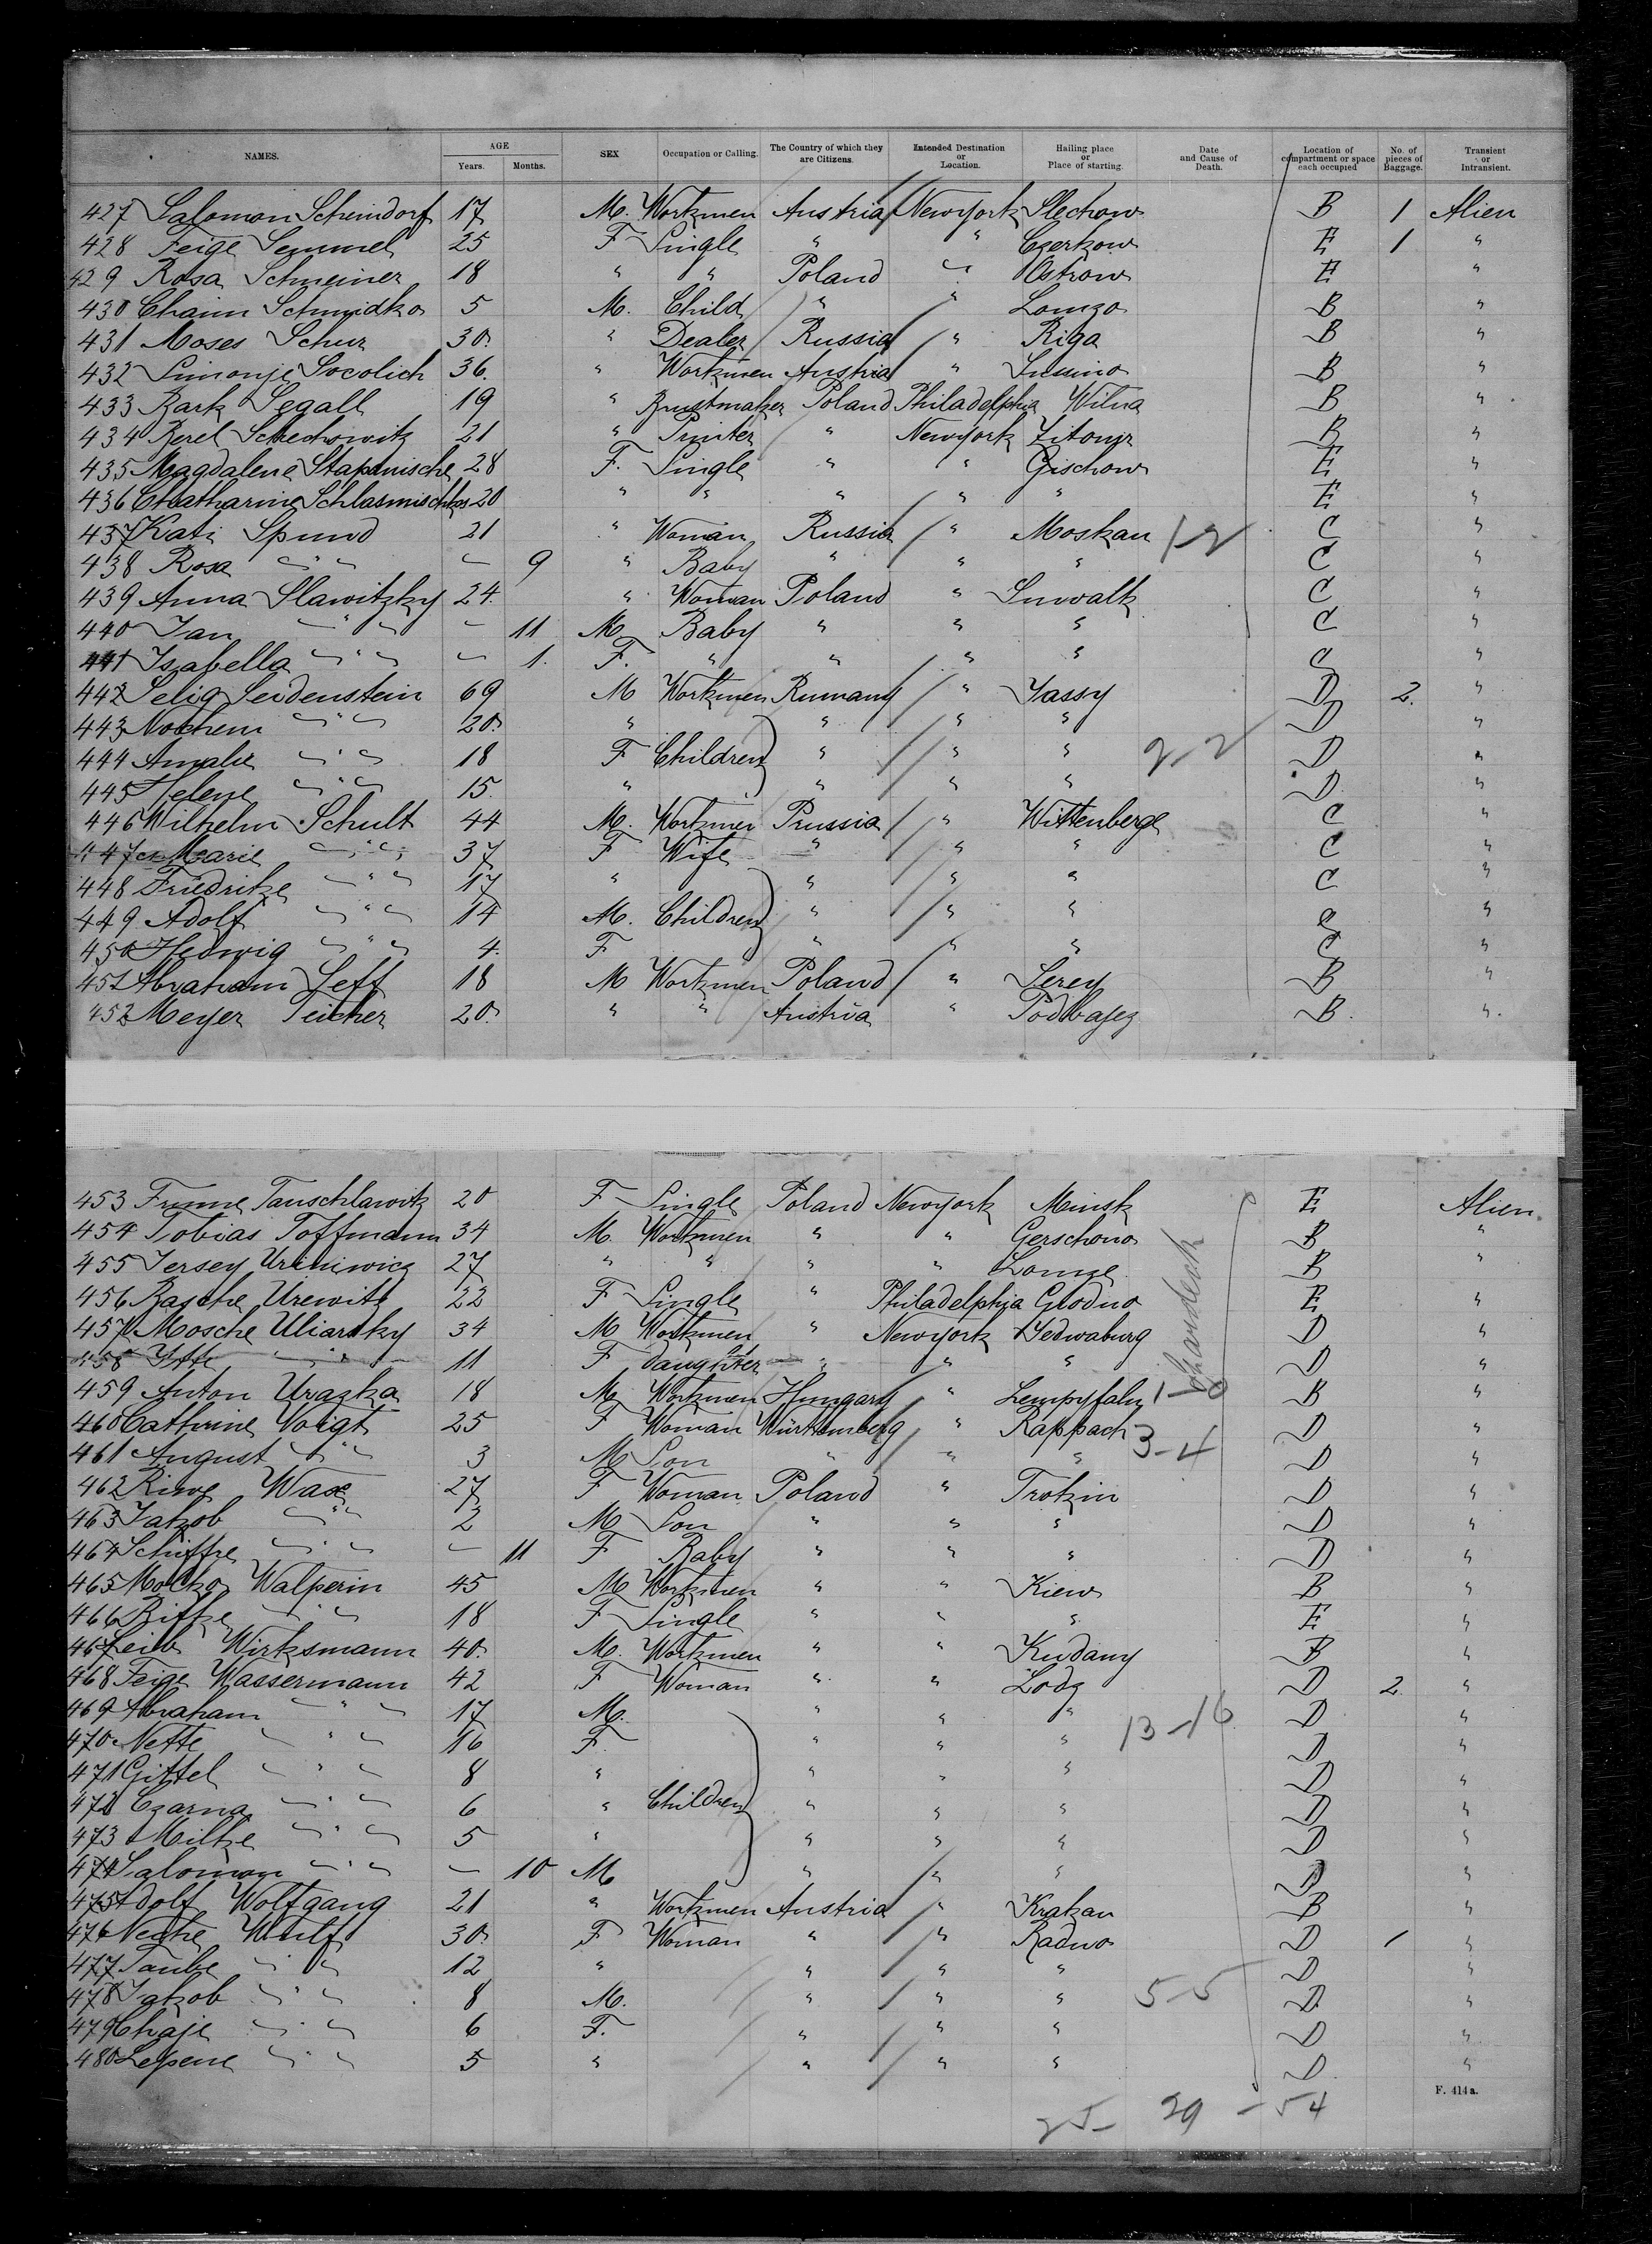 NAMES. AGE Years. Months. SEX Occupation or Calling. The Country of which they are Citizens. Intended Destination or Location. Hailing place or Place of starting. Date and Cause of Death. Location of compartment or space each occupied No. of pieces of Baggage. Transient or Intransient.
427 Salomon Scheindorf 17 M. Workmen Austria Newyork Slechow B 1 Alien
428 Feige Semmel 25 F Single " " Czerkow E 1 "
429 Rosa Schreiner 18 " " Poland " Ostrow E "
430 Chaim Schmidko 5 M. Child " " Lomzo B "
431 Moses Schur 30 " Dealer Russia " Riga B "
432 Simonje Socolich 36. " Workmen Austria " B "
433 Bark Segall 19 " Poland Philadelphia Wilna B "
434 Berel Schechowitz 21 " Printer " Newyork Zitomir B "
435 Magdalene 28 F. Single " " Gischow E "
436 20 " " " " " E "
437 Kati Spund 21 " Woman Russia " Moskau 1-2 C "
438 Rosa " - 9 " Baby " " " C "
439 Anna Slawitzky 24. " Woman Poland " Suwalk C "
440 Jan " - 11 M. Baby " " " C "
441 Isabella " - 1. F. " " " " C "
442 Selig Seidenstein 69 M Workmen Rumany " Jassy D 2. "
443 Nochem " 20 " " " " D "
444 Amalie " 18 F Children " " " 2-2 D "
445 Helene " 15. " " " " D "
446 Wilhelm Schult 44 M. Workmen Prussia " Wittenberge C "
447 Marie " 37 F Wife " " " C "
448 Friedrike " 17 " " " " C "
449 Adolf " 14 M. Children " " " C "
450 Hedwig " 4. F " " " C "
451 Abraham 18 M Workmen Poland " Serey B "
452 Meyer Teicher 20. " " Austria " Podhajez B. "
453 Tauschlawitz 20 F Single Poland Newyork Minsk E Alien
454 Tobias Toffmann 34 M. Workmen " " Gerschono B "
455 Jersey Uriniwicz 27 " " " " Lomze B "
456 Basche Urewitz 22 F Single " Philadelphia Grodno E "
457 Mosche Uliarsky 34 M Workmen " Newyork Yedwaburg D "
458 Itte " 11 F daughter " " " D "
459 Anton Urazka 18 M Workmen Hungary " 1-0 B "
460 Cathrine Voigt 25 F Woman Württemberg " Rappach 3-4 D "
461 August " 3 M Son " " " D "
462 Riwe Wase 27 F Woman Poland " Trokin D "
463 Jakob " 2 M Son " " " D "
464 Schiffre " - 11 F Baby " " " D "
465 Walperin 45 M Workmen " " Kiew B "
466 Rifke " 18 F Single " " " E "
467 Leib Wirksmann 40. M. Workmen " " Kudany B "
468 Feige Wassermann 42 F Woman " " Lodz D 2 "
469 Abraham " 17 M. " " " D "
470 Nette " 16 F. " " " 13-16 D "
471 Gittel " 8 " " " " D "
472 Czarna " 6 " Children " " " D "
473 Milke " 5 " " " " D "
474 Salomon " - 10 M " " " D "
475 Adolf Wolfgang 21 " Workmen Austria " Krakau B "
476 Neche Wulf 30. F Woman " " Radno D 1 "
477 Taube " 12 " " " " D "
478 Jakob " 8 M. " " " 5-5 D "
479 Chaje " 6 F. " " " D "
480 " 5 " " " " D "
F. 414a.
25- 29 - 54